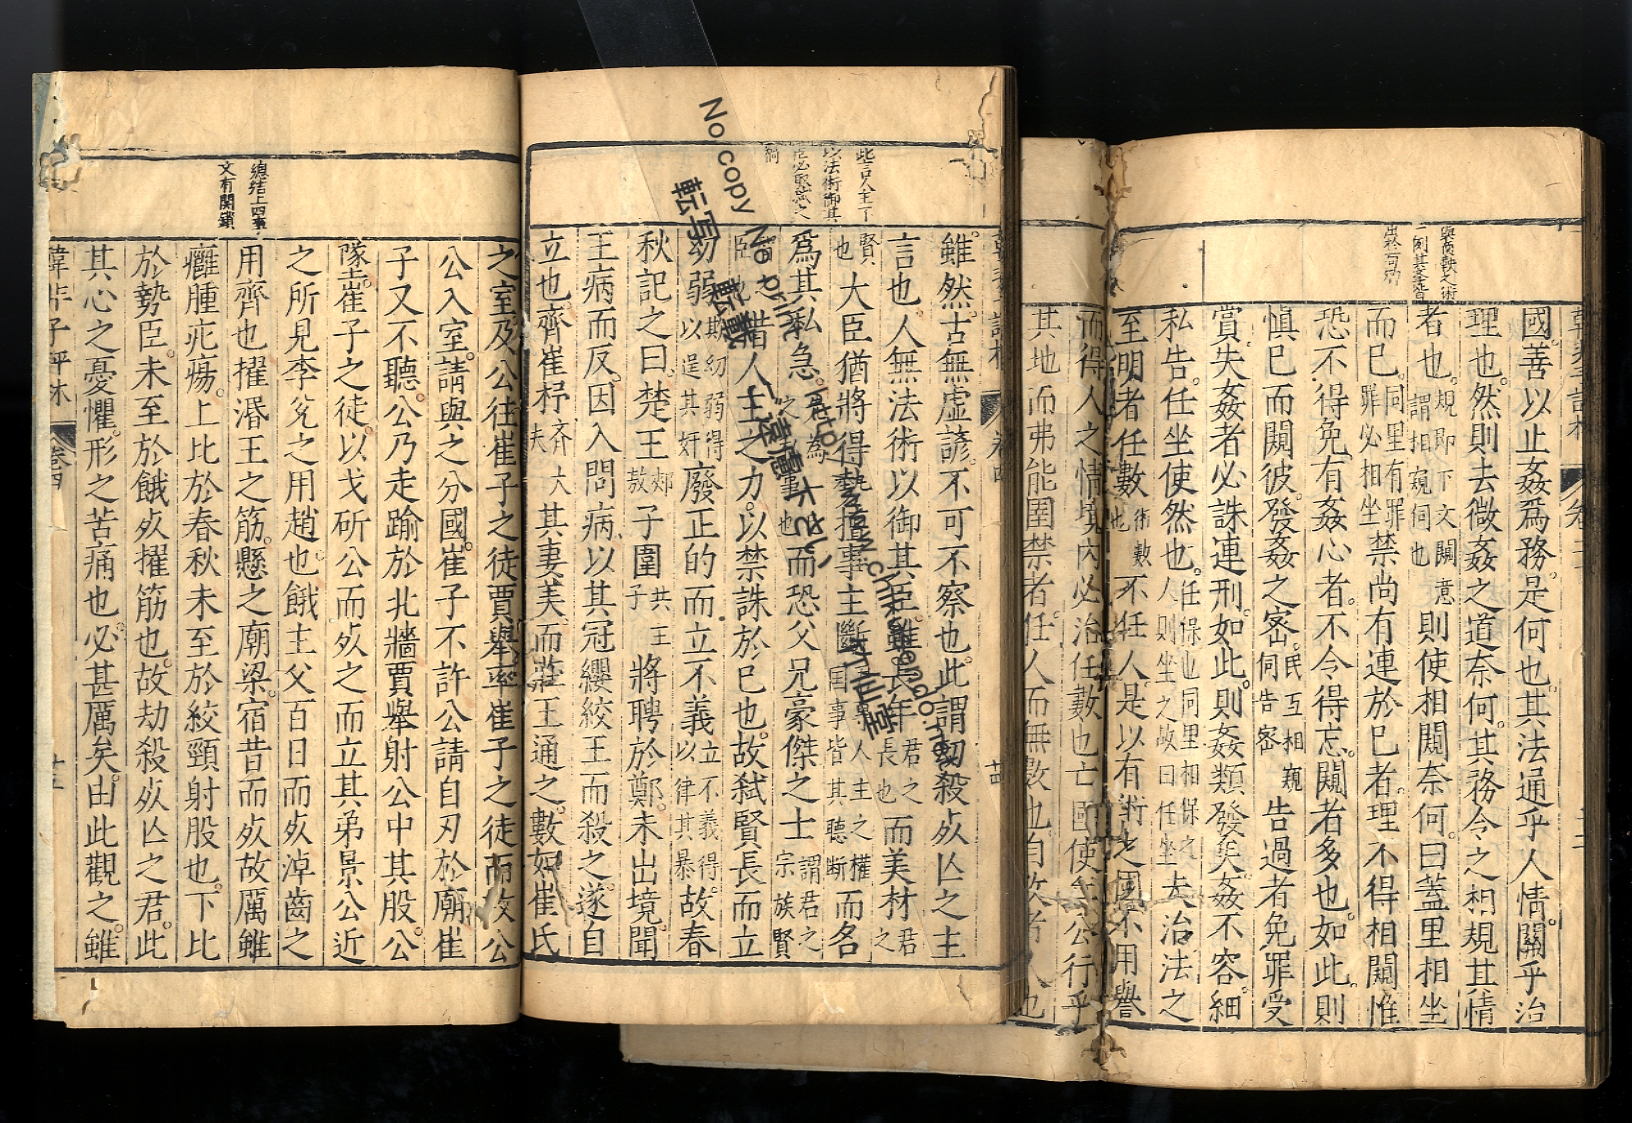 國善以止姦爲務是何也其法通乎人情關乎治
理也然則去微姦之道奈何其務令之相規其情
者也規即下文闚意謂相窺伺也則使相闚奈何曰蓋里相坐
而已同里有罪罪必相坐禁尚有連於已者理不得相闚惟
恐不得免有姦心者不令得忘闚者多也如此則
愼已而闚彼發姦之密民互相窺伺告密告過者免罪受
賞失姦者必誅連刑如此則姦類發矣姦不容細
私告任坐使然也任保也同里相保之人則坐之故曰任坐夫治法之
至明者任數術數也不任人是以有術之國不用譽
而得人之情境內必治任數也亡國使兵公行乎
其地而弗能圉禁者任人而無數也自攻者人也
此言人主下
以法術御其
雖然古無虛諺不可不察也此謂劫殺死亡之主
言也人無法術以御其臣雖長年君之長也而美材君之
賢也大臣猶將得勢擅事主斷國事皆其聽斷人主之權而各
爲其私急而恐父兄豪傑之士謂君之宗族賢
借人主之力以禁誅於已也故弑賢長而立
幼弱欺幼弱得以逞其奸廢正的而立不義立不義得以律其暴故春
秋記之曰楚王郟敖子圍共王子將聘於鄭未出境聞
王病而反因入問病以其冠纓絞王而殺之遂自
立也齊崔杼齊大夫其妻美而莊王通之數如崔氏
總結上四事
文有關鎖
之室及公往崔子之徒賈舉率崔子之徒而攻公
公入室請與之分國崔子不許公請自刃於廟崔
子又不聽公乃走踰於北牆賈舉射公中其股公
墜崔子之徒以戈斫公而死之而立其弟景公近
之所見李兌之用趙也餓主父百日而死淖齒之
用齊也擢湣王之筋懸之廟梁宿昔而死故厲雖
癰腫疕瘍上比於春秋未至於絞頸射股也下比
於勢臣未至於餓死擢筋也故劫殺死亡之君此
其心之憂懼形之苦痛也必甚厲矣由此觀之雖
韓非子評林
卷四
十五
No copy No print
転写 転載
ご遠慮下さい
竹仙堂